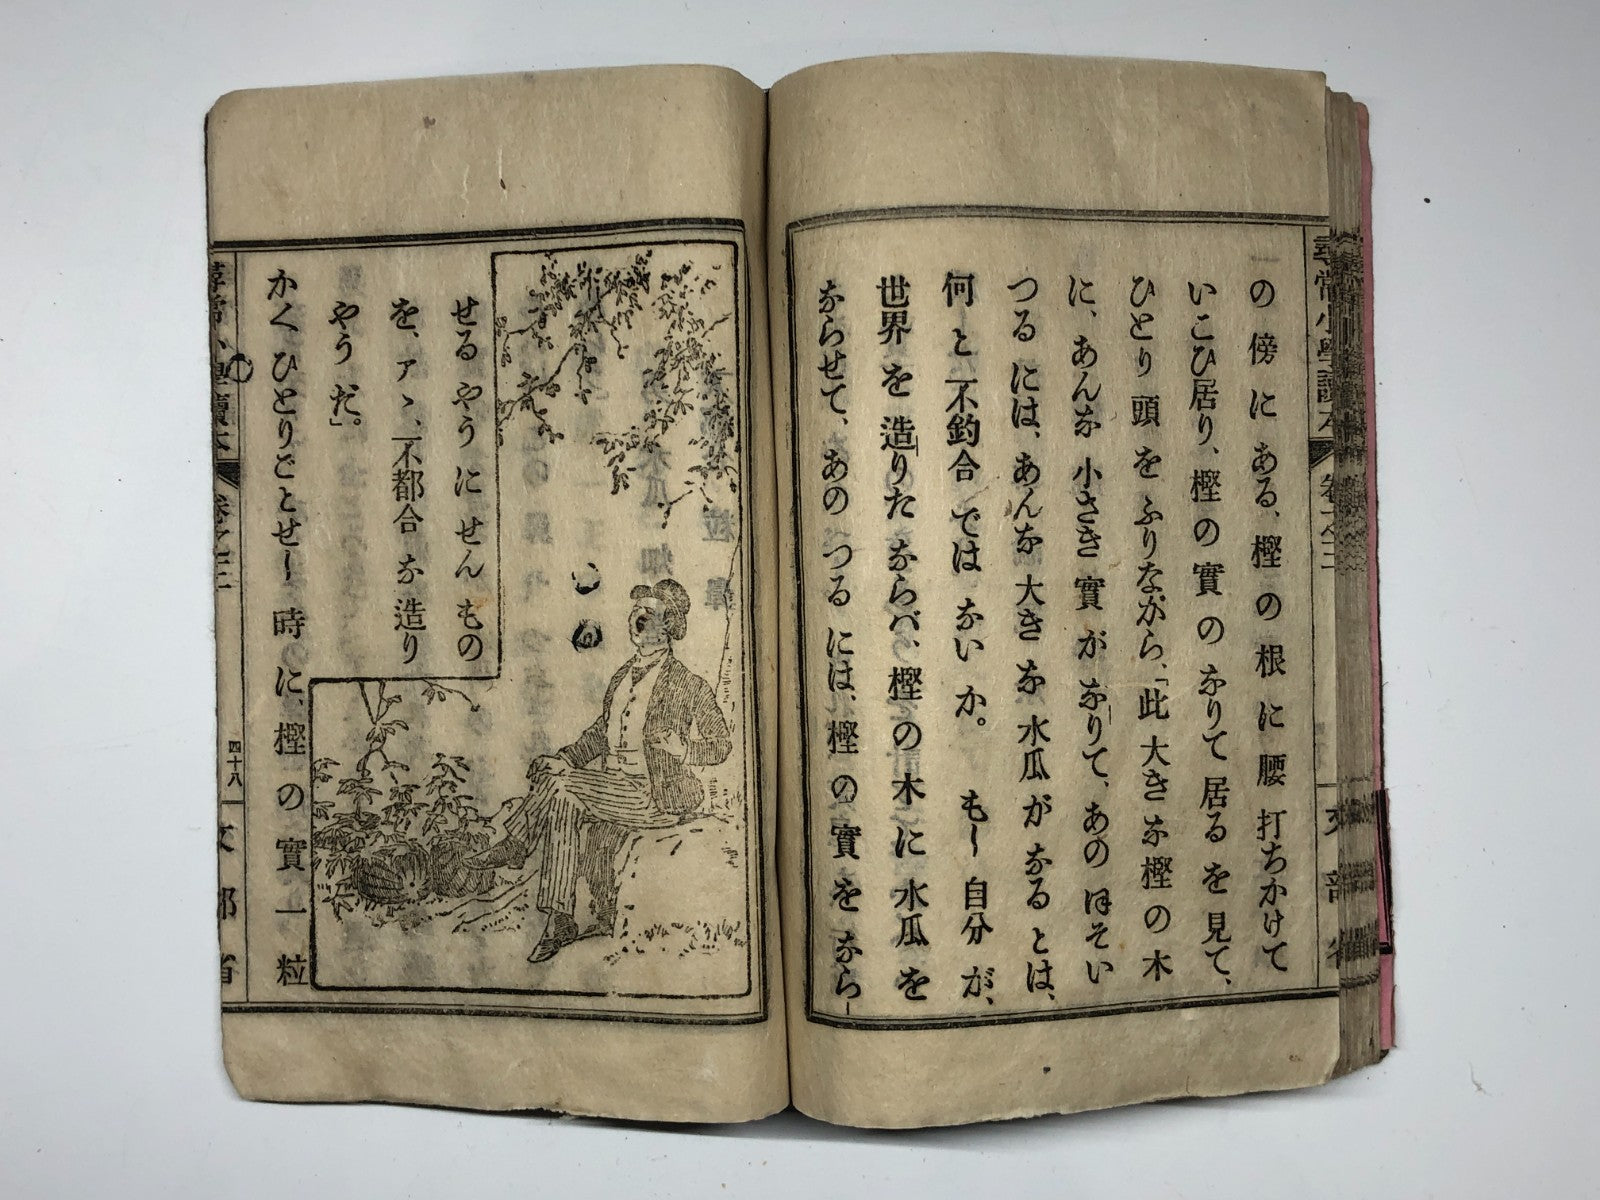 尋常小學讀本
卷之三
文部省
の傍にある、樫の根に腰打ちかけて
いこひ居り、樫の實のなりて居るを見て、
ひとり頭をふりながら、「此大きな樫の木
に、あんな小さき實がなりて、あのほそい
つるには、あんな大きな水瓜がなるとは、
何と不釣合ではないか。もし自分が、
世界を造りたならバ、樫の木に水瓜を
ならせて、あのつるには、樫の實をなら
せるやうにせんもの
を、アヽ、不都合な造り
やうだ」。
かくひとりごとせし時に、樫の實一粒
尋常小學讀本
卷之三
四十八
文部省